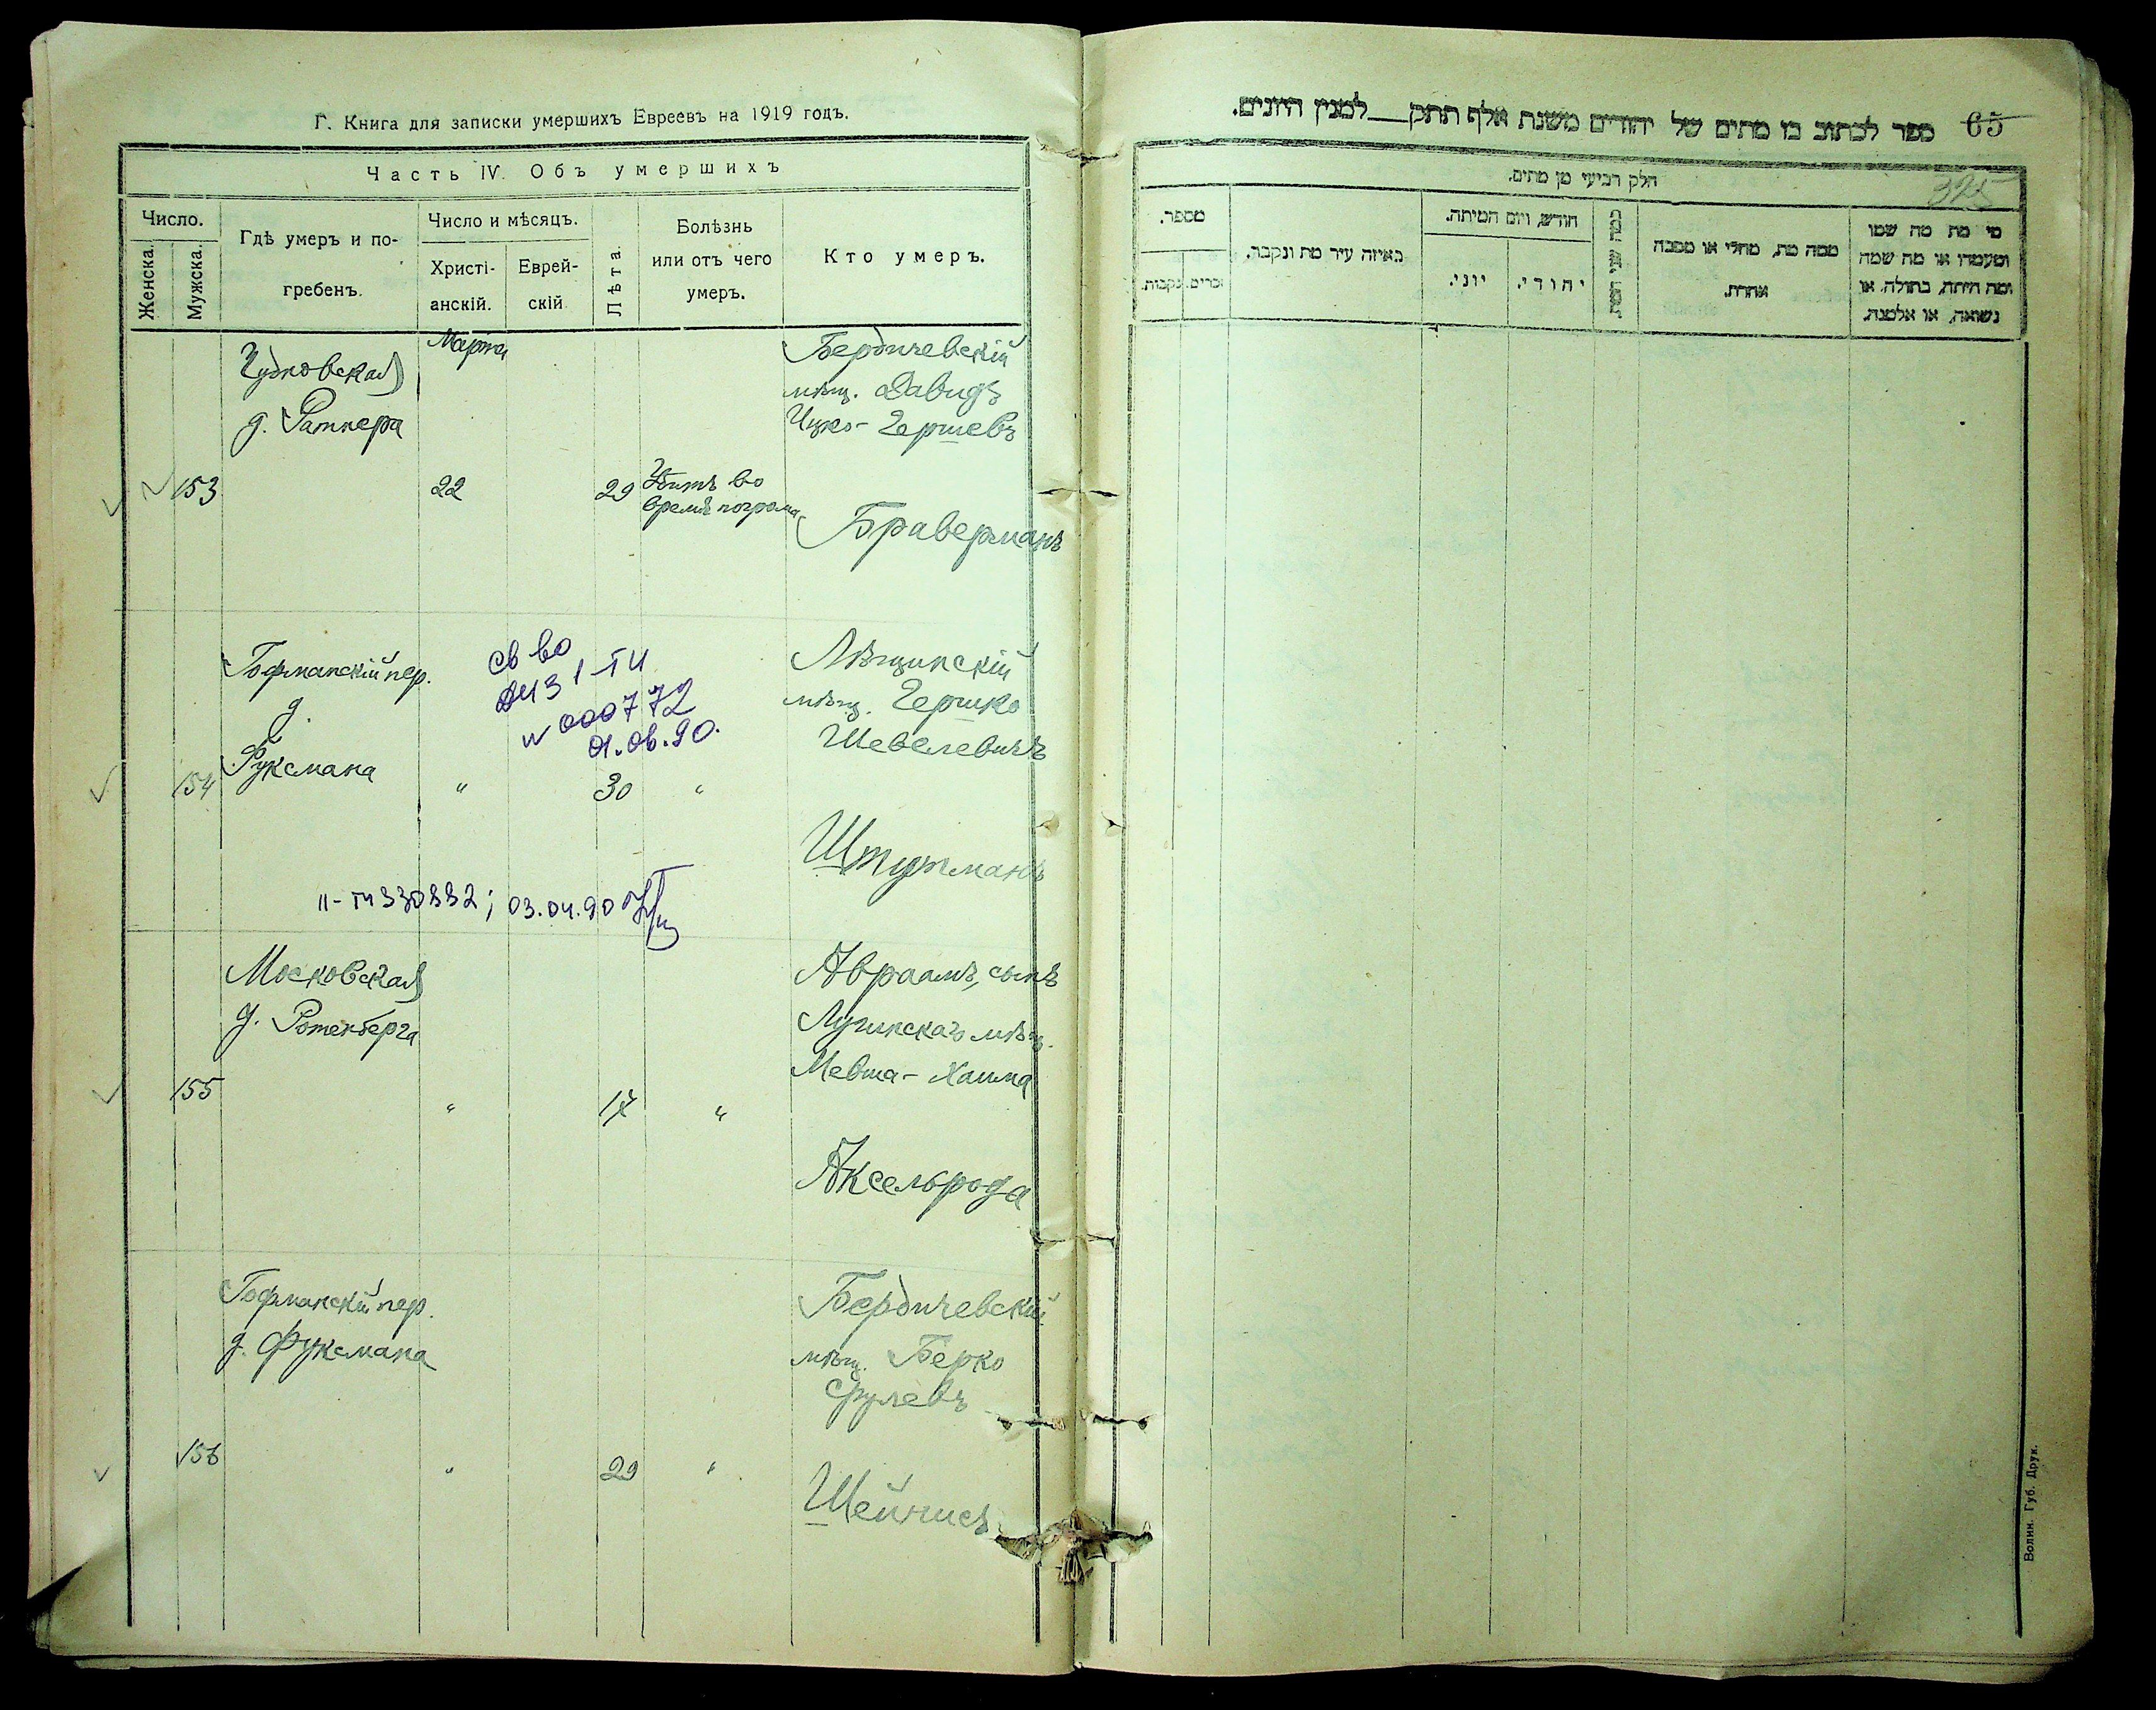 Г. Книга для записки умершихъ Евреевъ на 1919 годъ.
Часть IV. Объ умершихъ
Число.
Женска.
Мужска.
Гдѣ умеръ и по-
гребенъ.
Число и мѣсяцъ.
Христі-
анскій.
Еврей-
скій
Лѣта.
Болѣзнь
или отъ чего
умеръ.
Кто умеръ.
Марта
Чудновская
д. Ратнера
153
22
29
Убитъ во
время погрома
Бердичевскій
мѣщ. Давидъ
Ицко-Гершевъ
Браверманъ
Гофманскій пер.
д.
Фуксмана
154
"
30
"
Лѣщинскій
мѣщ. Гершко
Шевелевичъ
Штурманъ
св во
1-ТИ
N 000772
01.06.90.
II-ТИ 330832; 03.04.90
Московская
д. Ротенберга
155
"
17
"
Авраамъ, сынъ
Лугинскаго мѣщ.
Мевша-Хаима
Аксельрода
Гофманскій пер.
д. Фуксмана
156
"
29
"
Бердичевскій
мѣщ. Берко
Срулевъ
Шейнисъ
65
ספר לכתוב בו מתים של יהודים משנת אלף תתק__למנין היונים.
325
חלק רביעי מן מתים.
מספר.
זכרים.
נקבות.
באיזה עיר מת ונקבר.
חודש, ויום המיתה.
יוני.
יהודי.
כמה שני המת
ממה מת, מחלי או מסבה
אחרת.
מי מת מה שמו
ומעמדו או מה שמה
ומה היתה, בתולה, או
נשואה, או אלמנה.
Волин. Губ. Друк.